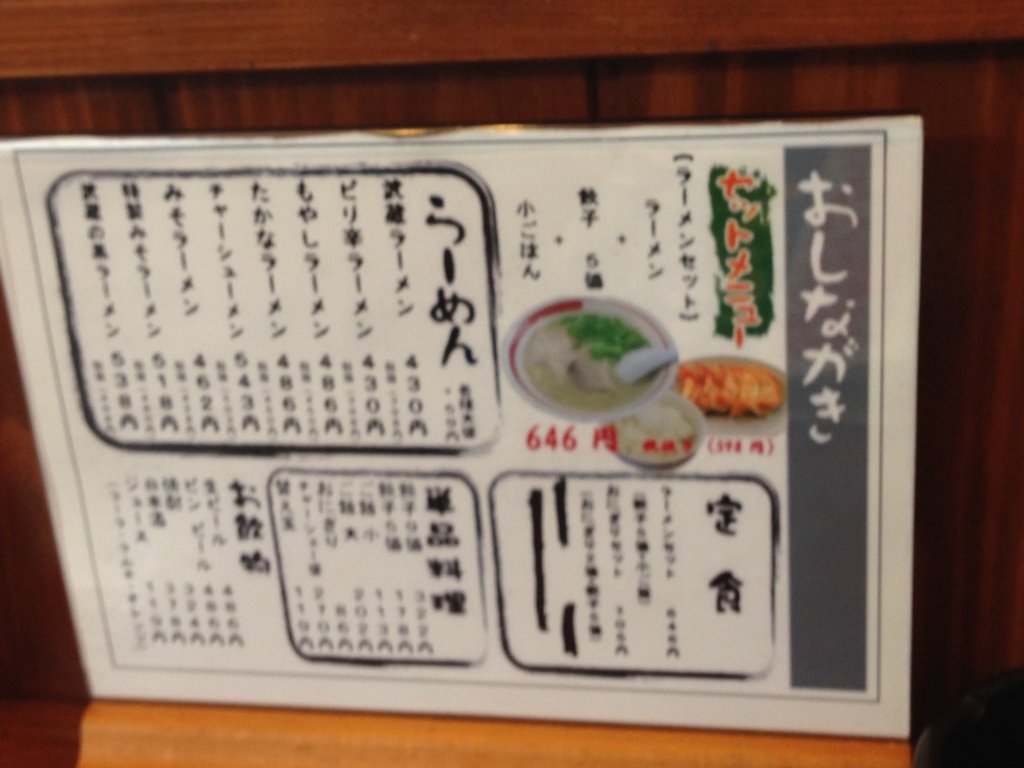 おしながき
セットメニュー
(ラーメンセット)
ラーメン
+
餃子 5個
+
小ごはん
646円
(598円)
らーめん
武蔵ラーメン 430円
ピリ辛ラーメン 430円
もやしラーメン 486円
たかなラーメン 486円
チャーシューメン 543円
みそラーメン 462円
特製みそラーメン 518円
武蔵の黒ラーメン 538円
定食
ラーメンセット 646円
(餃子5個+小ご飯)
おにぎりセット 705円
(おにぎり2個+餃子5個)
単品料理
餃子9個 322円
餃子5個 178円
ご飯 小 113円
ご飯 大 202円
おにぎり 86円
270円
替え玉 119円
お飲物
生ビール 486円
ビンビール 486円
焼酎 324円
日本酒 378円
ジュース 119円